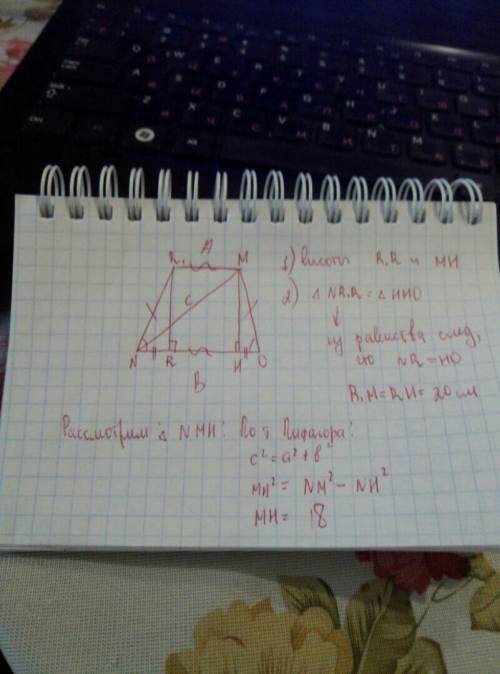 A
R₁ M
C
N R H O
B
1) Высоты R₁R и MH
2) Δ NR₁R = Δ HMO
↓
из равенства след,
что NR = HO
R₁M = RH = 20 см
Рассмотрим Δ NMH: По т. Пифагора:
c² = a² + b²
MH² = NM² - NH²
MH = 18